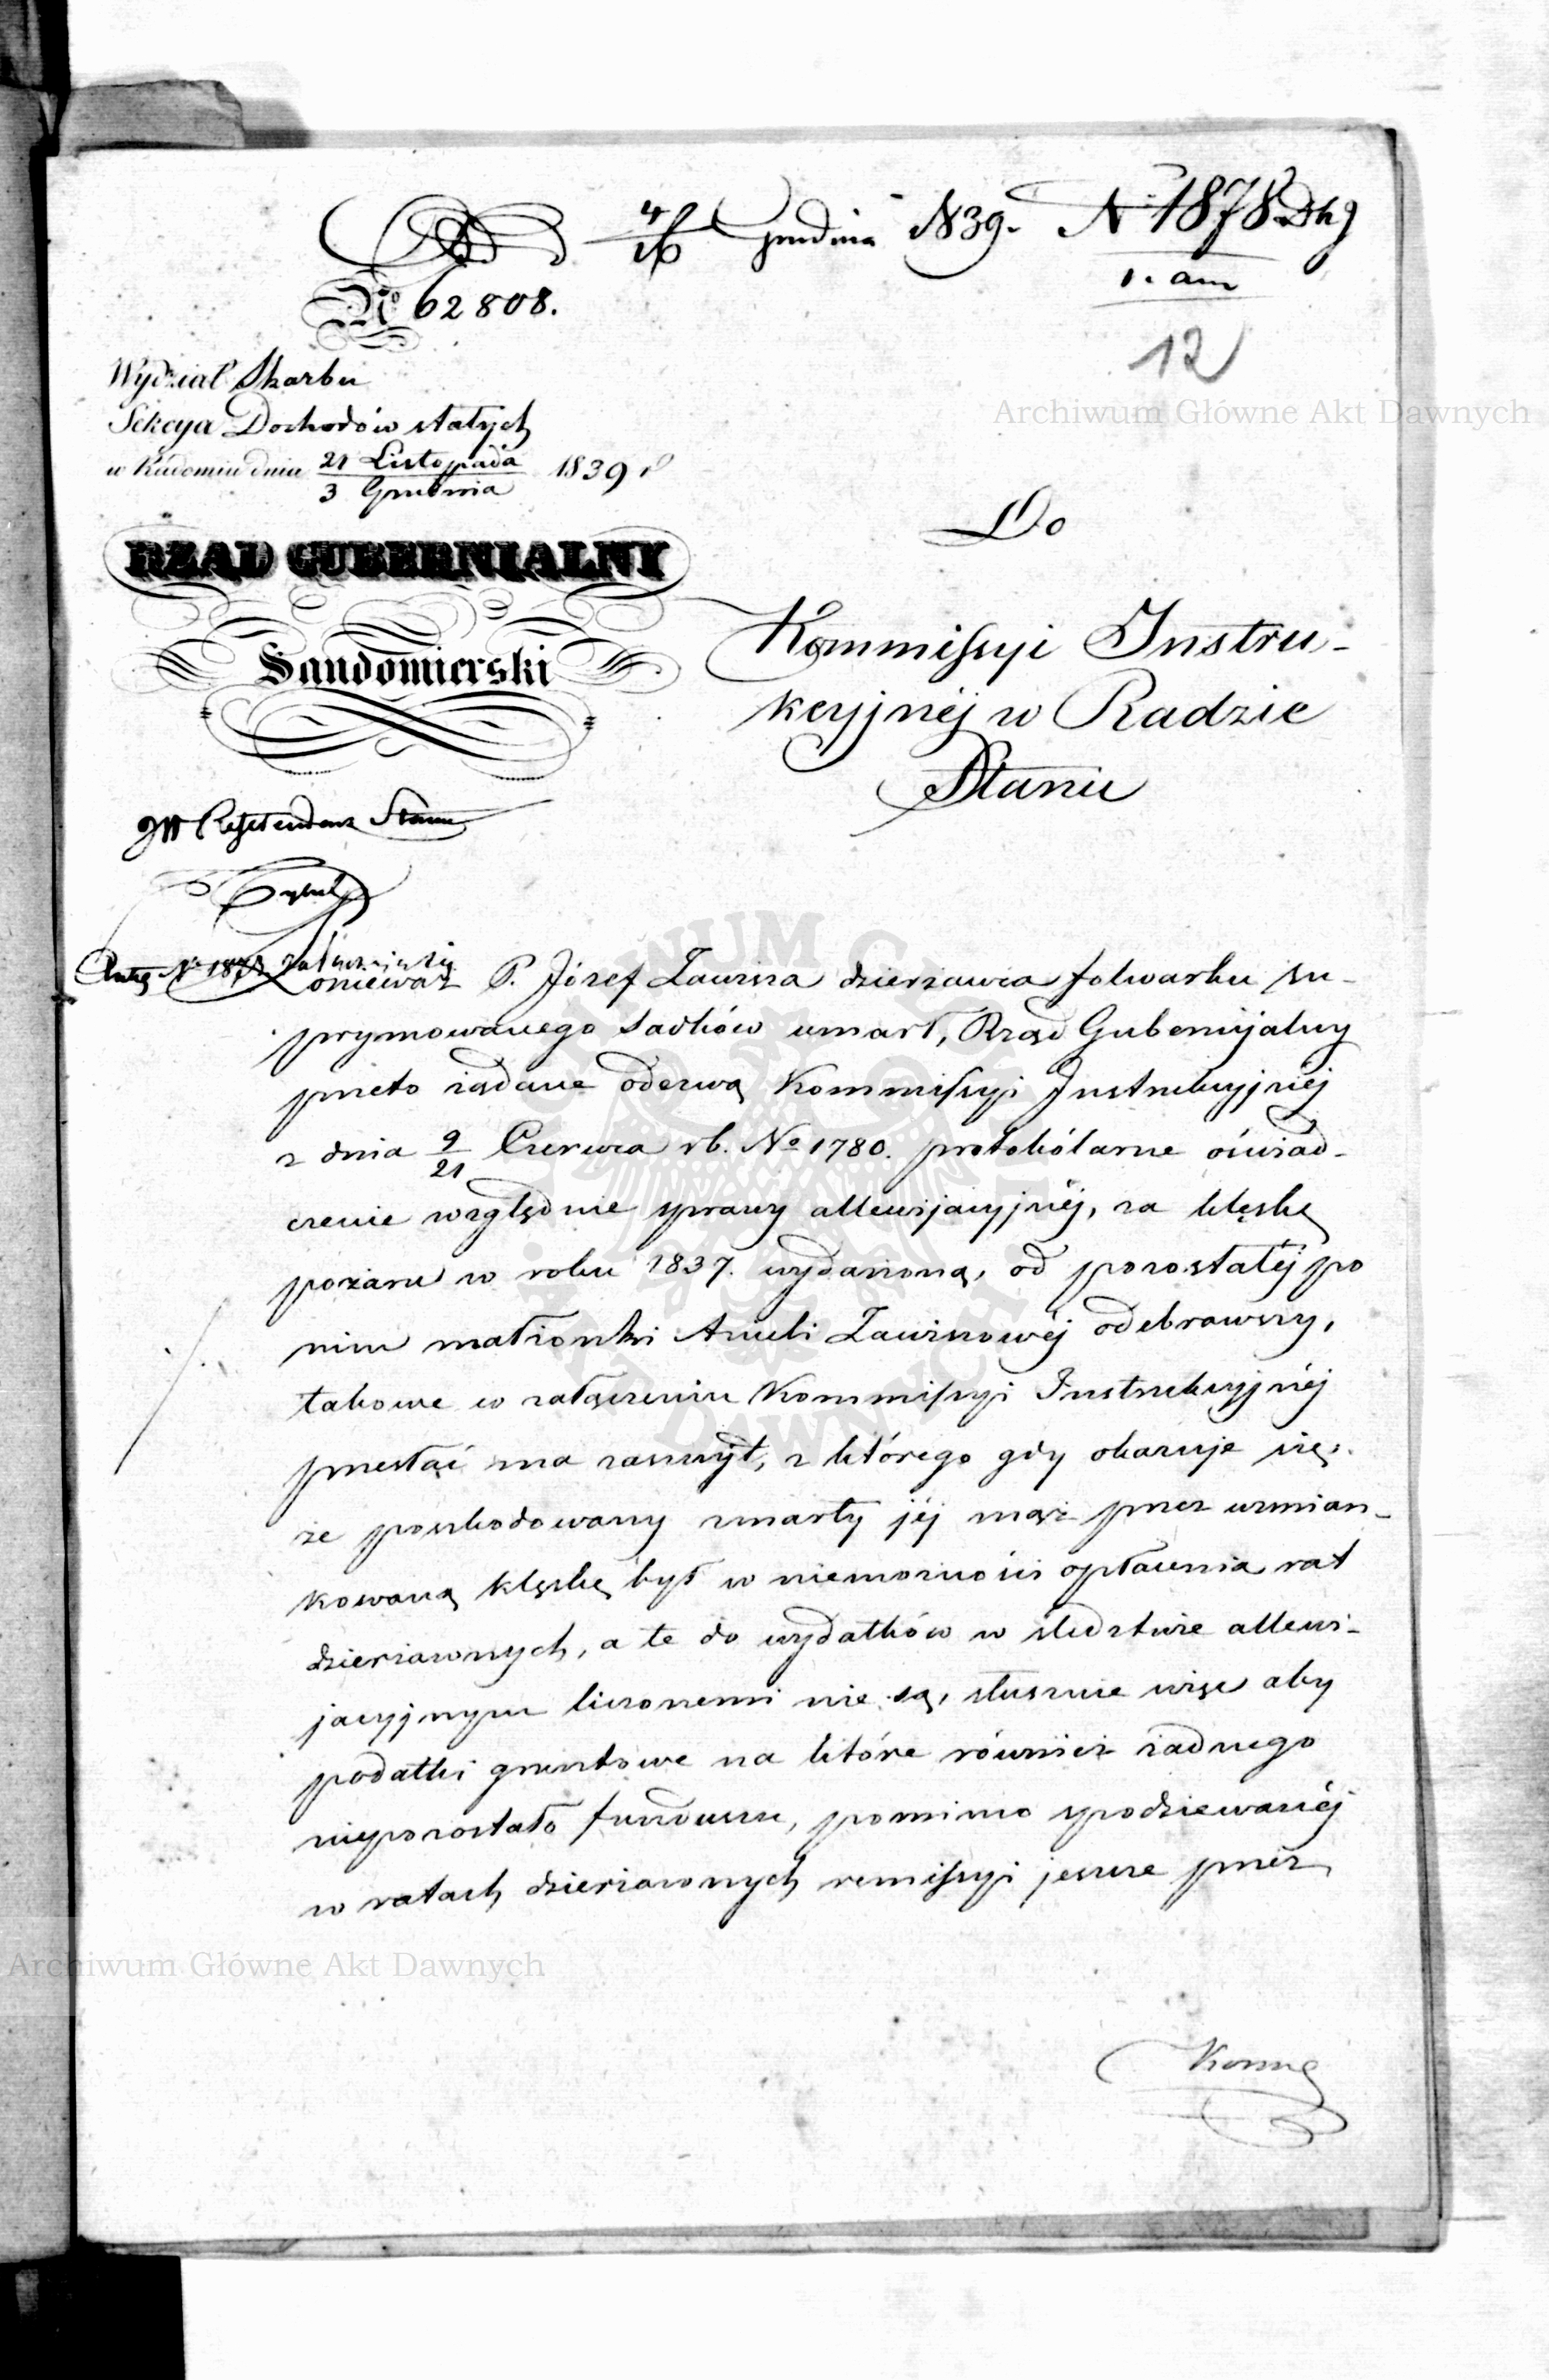 4/16 Grudnia 1839. N 1878
1. an
12
No 62808.
Wydział Skarbu
Sekcya Dochodów stałych
w Radomiu dnia 21 Listopada / 3 Grudnia 1839 r
RZĄD GUBERNIALNY
Sandomierski
Do
Kommissyi Instru-
kcyjnéj w Radzie
Stanu
JW Referendarz Stanu
Archiwum Główne Akt Dawnych
Poniewaz P. Józef Zawisza dzierzawca folwarku su-
prymowanego Sadków umarł, Rząd Gubernijalny
przeto ządane odezwą Kommissyi Instrukcyjnéj
z dnia 9/21 Czerwca rb. No 1780. protokólarne oświad-
czenie względnie sprawy allewijacyjnéj, za klęskę
pożaru w roku 1837. wydarzoną, od pozostałéj po
nim małżonki Anieli Zawiszowéj odebrawszy,
takowe w załączeniu Kommissyi Instrukcyjnéj
przesłać ma zaszczyt, z którego gdy okazuje się,
że poszkodowany zmarły jéj mąż przez wzmian-
kowaną klęskę był w niemożności opłacenia rat
dzierżawnych, a te do wydatków w śledztwie allewi-
jacyjnym liczonemi nie są, słusznie więc aby
podatki gruntowe na które również żadnego
niepozostało funduszu, pomimo spodziewanéj
w ratach dzierżawnych remissyi jeszcze przez
Archiwum Główne Akt Dawnych